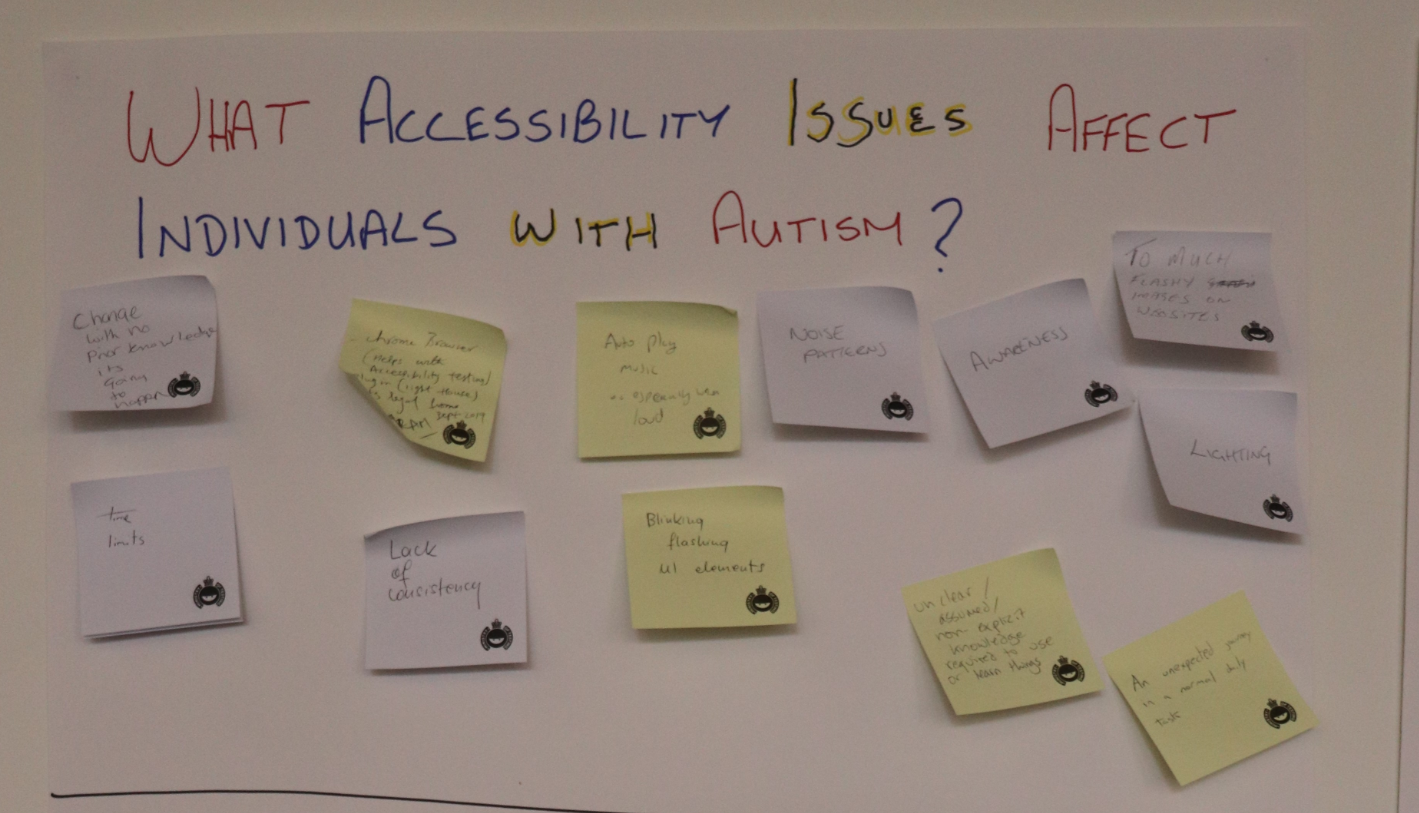 WHAT ACCESSIBILITY ISSUES AFFECT
INDIVIDUALS WITH AUTISM?
Change
with no
Prior knowledge
its
Going
to
happen
- Chrome Browser
(helps with
Accessibility testing)
plugin (light house)
is legal
Sept 2019
Auto play
music
especially when
loud
NOISE
PATTERNS
AWARENESS
TO MUCH
FLASHY
IMAGES ON
WEBSITES
LIGHTING
time
limits
Lack
of
consistency
Blinking
flashing
UI elements
unclear /
assumed /
non-explicit
knowledge
required to use
or learn things
An unexpected journey
in a normal daily
task